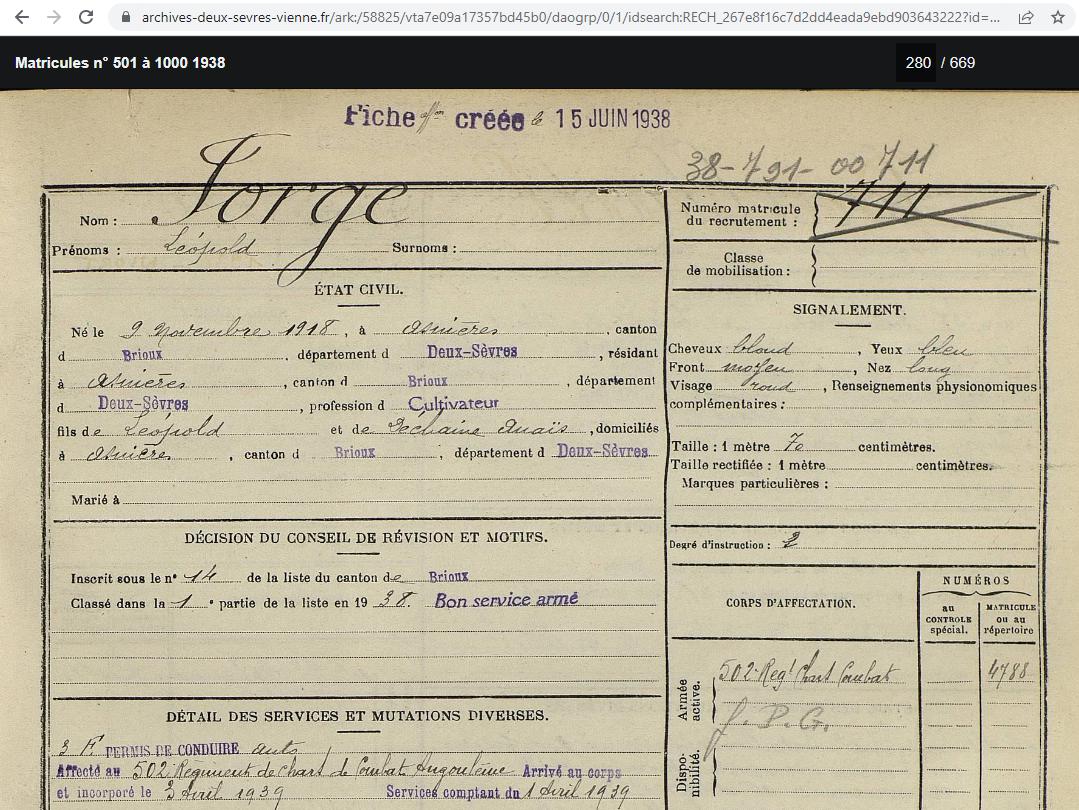 archives-deux-sevres-vienne.fr/ark:/58825/vta7e09a17357bd45b0/daogrp/0/1/idsearch:RECH_267e8f16c7d2dd4eada9ebd903643222?id=...
Matricules n° 501 à 1000 1938
280 / 669
Fiche créée le 15 JUIN 1938
38-791-00 711
Nom : Forge
Prénoms : Léopold Surnoms :
Numéro matricule du recrutement : 711
Classe de mobilisation :
ÉTAT CIVIL.
Né le 9 Novembre 1918, à Asnières, canton
d Brioux, département d Deux-Sèvres, résidant
à Asnières, canton d Brioux, département
d Deux-Sèvres, profession d Cultivateur
fils de Léopold et de Déchaine Anaïs, domiciliés
à Asnières, canton d Brioux, département d Deux-Sèvres
Marié à
SIGNALEMENT.
Cheveux blond, Yeux bleu
Front moyen, Nez long
Visage rond, Renseignements physionomiques
complémentaires :
Taille : 1 mètre 70 centimètres.
Taille rectifiée : 1 mètre centimètres.
Marques particulières :
Degré d'instruction : 2
DÉCISION DU CONSEIL DE RÉVISION ET MOTIFS.
Inscrit sous le n° 14 de la liste du canton de Brioux
Classé dans la 1e partie de la liste en 1938. Bon service armé
CORPS D'AFFECTATION.
NUMÉROS
au CONTROLE spécial.
MATRICULE ou au répertoire
Armée active.
502e Regt Chars Combat 4788
J. P. G.
Disponibilité.
DÉTAIL DES SERVICES ET MUTATIONS DIVERSES.
3 F PERMIS DE CONDUIRE auto
Affecté au 502 Régiment de chars de Combat Angoulême Arrivé au corps
et incorporé le 3 Avril 1939 Services comptant du 1 Avril 1939